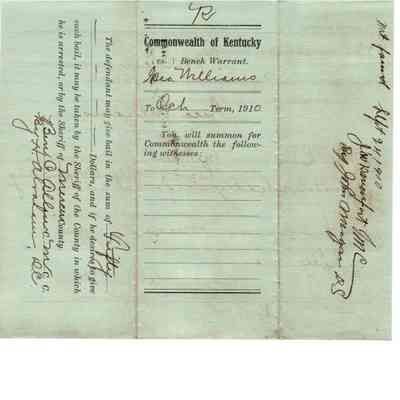 R
Commonwealth of Kentucky
vs. Bench Warrant.
Geo Williams
To Oct Term, 1910
You will summon for
Commonwealth the follow-
ing witnesses:
The defendant may give bail in the sum of Fifty
Dollars, and if he desires to give
such bail, it may be taken by the Sheriff of the County in which
he is arrested, or by the Sheriff of Mercer County
Ben C Allin
By H
D.C.
Not found Sept 24 1910
By John
D.S.